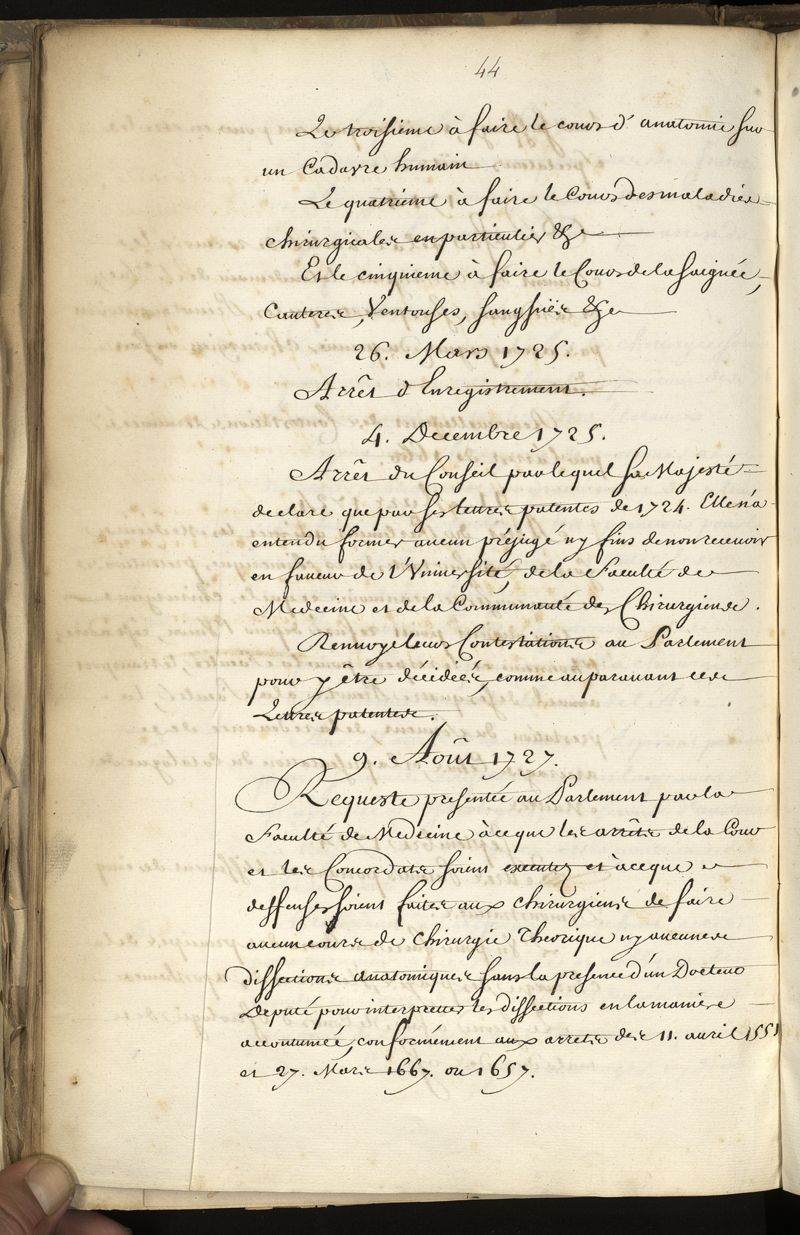 44
Le troisieme à faire le cours d'anatomie sur
un Cadavre humain
Le quatrieme à faire le Cours des maladies
chirurgicales en particulier &c
Et le cinquieme à faire le Cours de la saignée,
Cauteres, Ventouses, sangsües &c
26. Mars 1725.
Arrêt d'Enregistrement.
4. Decembre 1725.
Arrêt du Conseil par lequel sa Majesté
declare que par ses lettres patentes de 1724. Elle n'a
entendu former aucun préjugé ny fins de non recevoir
en faveur de l'Université, de la Faculté de
Medecine et de la Communauté des Chirurgiens.
Renvoye leurs Contestations au Parlement
pour y être décidées, comme auparavant ces
Lettres patentes.
9. Août 1727.
Requeste presentée au Parlement par la
Faculté de Medecine à ce que les arrêts de la Cour
et les Concordats soient executez et à ce que
deffenses soient faites aux chirurgiens de faire
aucun cours de Chirurgie Theorique ny aucunes
dissections anatomiques sans la presence d'un Docteur
Deputé pour interpretter les dissections en la maniere
accoutumée, conformément aux arrets des 11. avril 1551
et 27. Mars 1667. ou 1657.